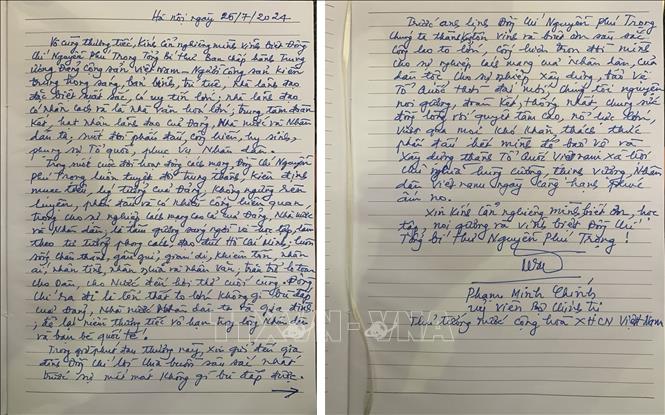 Hà nội ngày 25/7/2024
Vô cùng thương tiếc, Kính cẩn nghiêng mình vĩnh biệt Đồng
Chí Nguyễn Phú Trọng Tổng bí thư Ban chấp hành Trung
ương Đảng Cộng sản Việt Nam. Người Cộng sản kiên
trung trong sáng, bản lĩnh, trí tuệ, nhà lãnh đạo
đặc biệt xuất sắc, có uy tín lớn; nhà lãnh đạo
có nhân cách và là nhà văn hoá lớn; trung tâm đoàn
kết, hạt nhân lãnh đạo của Đảng, Nhà nước và Nhân
dân ta; suốt đời phấn đấu, cống hiến, hy sinh,
phụng sự Tổ quốc, phục vụ Nhân dân.
Trong suốt cuộc đời hoạt động cách mạng, Đồng Chí Nguyễn
Phú Trọng luôn tuyệt đối trung thành, kiên định
mục tiêu, lý tưởng của Đảng, không ngừng rèn
luyện, phấn đấu và có nhiều cống hiến quan
trọng cho sự nghiệp cách mạng của Đảng, Nhà nước
và Nhân dân; là tấm gương sáng ngời về học tập, làm
theo tư tưởng, phong cách, đạo đức Hồ Chí Minh; luôn
sống chân thành, gần gũi, giản dị, khiêm tốn, nhân
ái, nhân tình, nhân nghĩa và nhân văn; trăn trở lo toan
cho Dân, cho Nước đến hơi thở cuối cùng. Đồng
Chí ra đi là tổn thất to lớn không gì bù đắp
của Đảng, Nhà nước, Nhân dân ta và gia đình;
để lại niềm thương tiếc vô hạn trong lòng Nhân dân
và bạn bè quốc tế.
Trong giờ phút đau thương này, xin gửi đến gia
đình Đồng chí lời chia buồn sâu sắc nhất
trước sự mất mát không gì bù đắp được.
Trước anh linh Đồng Chí Nguyễn Phú Trọng
Chúng ta thành kính tôn vinh và biết ơn sâu sắc
Công lao to lớn, cống hiến trọn đời mình
cho sự nghiệp cách mạng của Nhân dân, của
dân tộc, cho sự nghiệp xây dựng, bảo vệ
Tổ Quốc thời đại mới; Chúng tôi nguyện
noi gương, đoàn kết, thống nhất, chung sức
đồng lòng với quyết tâm cao, nỗ lực lớn,
vượt qua mọi khó khăn, thách thức
phấn đấu hết mình để bảo vệ và
xây dựng thành Tổ Quốc Việt nam xã hội
chủ nghĩa hùng cường, thịnh vượng, Nhân
dân Việt nam ngày càng hạnh phúc
ấm no.
Xin Kính Cẩn nghiêng mình, biết ơn, học
tập, noi gương và vĩnh biệt Đồng Chí
Tổng bí thư Nguyễn Phú Trọng!
Phạm Minh Chính
Uỷ viên Bộ Chính trị
Thủ tướng nước cộng hoà XHCN Việt Nam
TTXVN - VNA